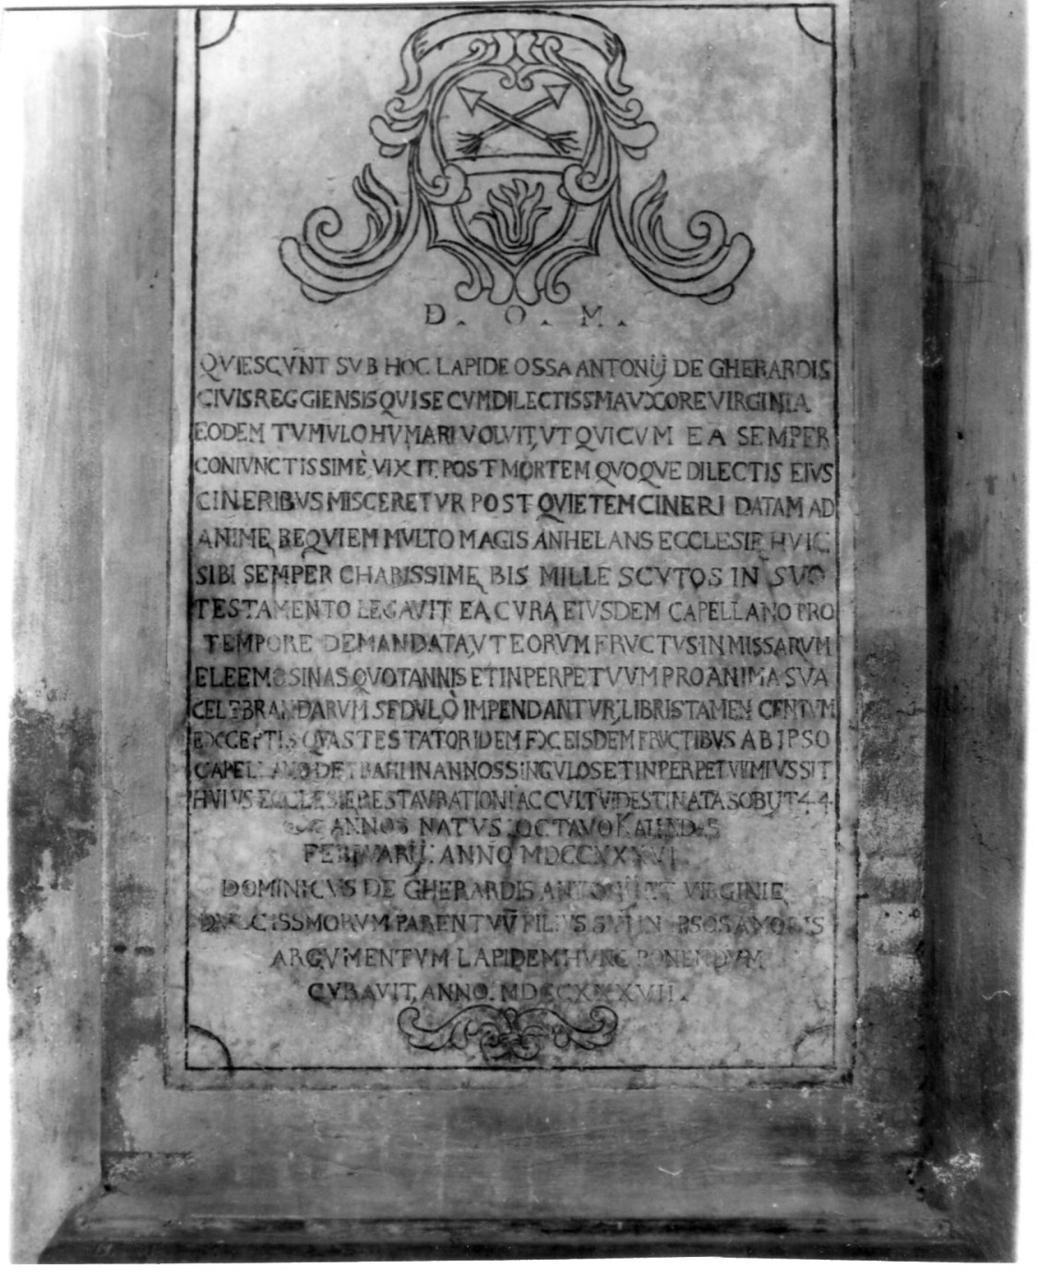 D. O. M.
QVIESCVNT SVB HOC LAPIDE OSSA ANTONIJ DE GHERARDIS
CIVIS REGGIENSIS QVI SE CVM DILECTISSMA VXORE VIRGINIA
EODEM TVMVLO HVMARI VOLVIT, VT QVICVM EA SEMPER
CONIVNCTISSIMÈ VIXIT POST MORTEM QVOQVE DILECTIS EIVS
CINERIBVS MISCERETVR POST QVIETEM CINERI DATAM AD
ANIMÆ REQVIEM MVLTO MAGIS ANHELANS ECCLESIÆ HVIC
SIBI SEMPER CHARISSIMÆ BIS MILLE SCVTOS IN SVO
TESTAMENTO LEGAVIT EA CVRA EIVSDEM CAPELLANO PRO
TEMPORE DEMANDATA, VT EORVM FRVCTVS IN MISSARVM
ELEEMOSINAS QVOTANNIS ET IN PERPETVVM PRO ANIMA SVA
CELEBRANDARVM SEDVLÒ IMPENDANTVR, LIBRIS TAMEN CENTVM
EXCEPTIS QVAS TESTATOR IDEM EX EISDEM FRVCTIBVS AB IPSO
CAPELLANO DETRAHI IN ANNOS SINGVLOS ET IN PERPETVVM IVSSIT
HVIVS ECCLESIÆ RESTAVRATIONI AC CVLTVI DESTINATAS OBIJT 44
ANNOS NATVS OCTAVO KALENDAS
FEBRVARIJ. ANNO
DOMINICVS DE GHERARDIS ANTONIJ ET VIRGINIÆ
PARENTVM FILIVS SVI IN IPSOS AMORIS
ARGVMENTVM LAPIDEM HVNC PONENDVM
CVRAVIT, ANNO. MDCCXXXVII.